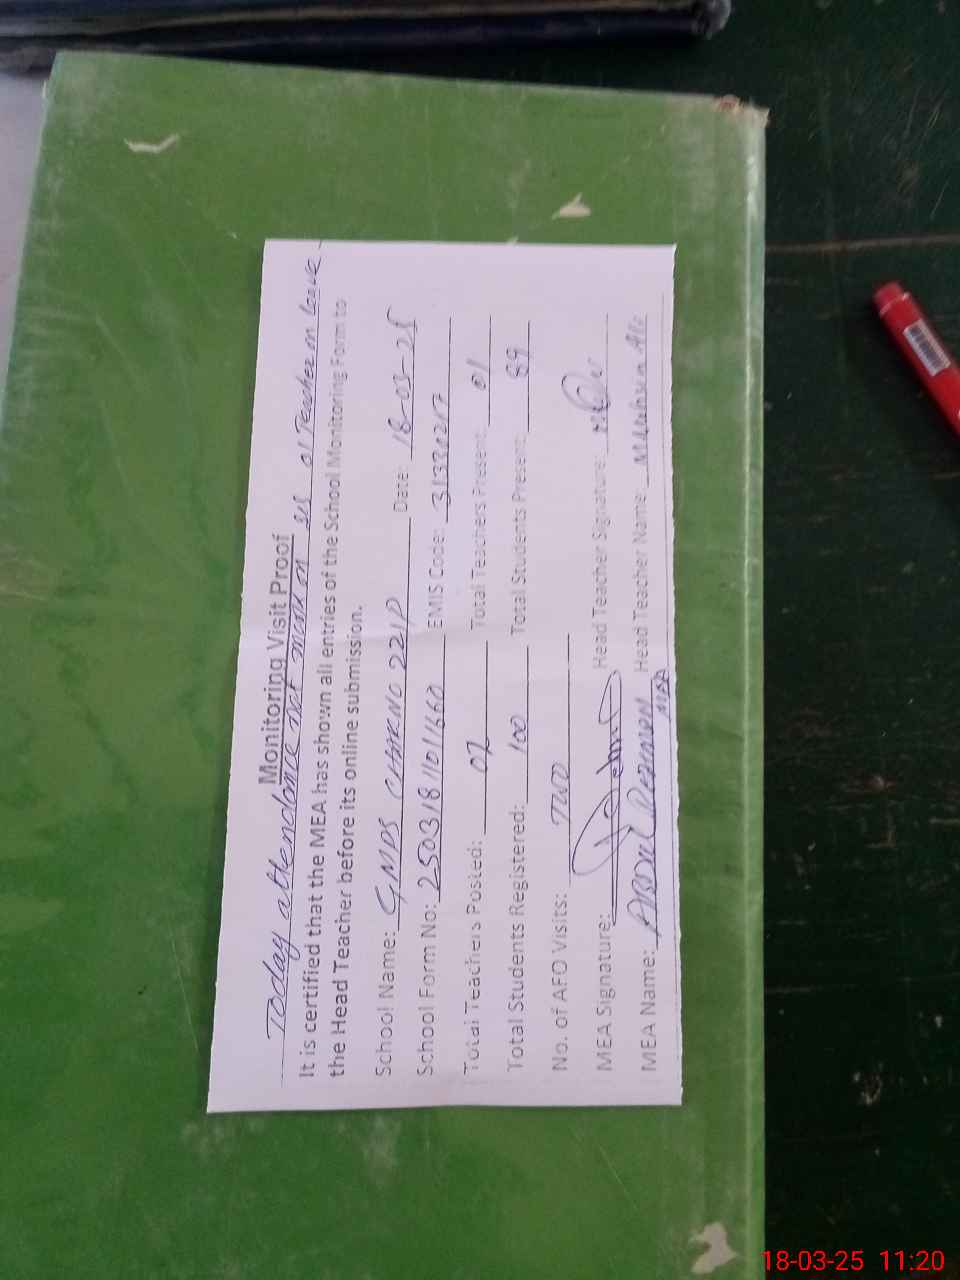 Monitoring Visit Proof
Today attendance not mark on SIS 01 Teacher on leave
It is certified that the MEA has shown all entries of the School Monitoring Form to
the Head Teacher before its online submission.
School Name: GMPS CHAK NO 221P Date: 18-03-25
School Form No: 2503181101660 EMIS Code: 31330217
Total Teachers Posted: 02 Total Teachers Present: 01
Total Students Registered: 100 Total Students Present: 89
No. of AEO Visits: TWO
MEA Signature: Head Teacher Signature:
MEA Name: Abdul Rehman Head Teacher Name: Mohsin Ali
MEA
18-03-25 11:20